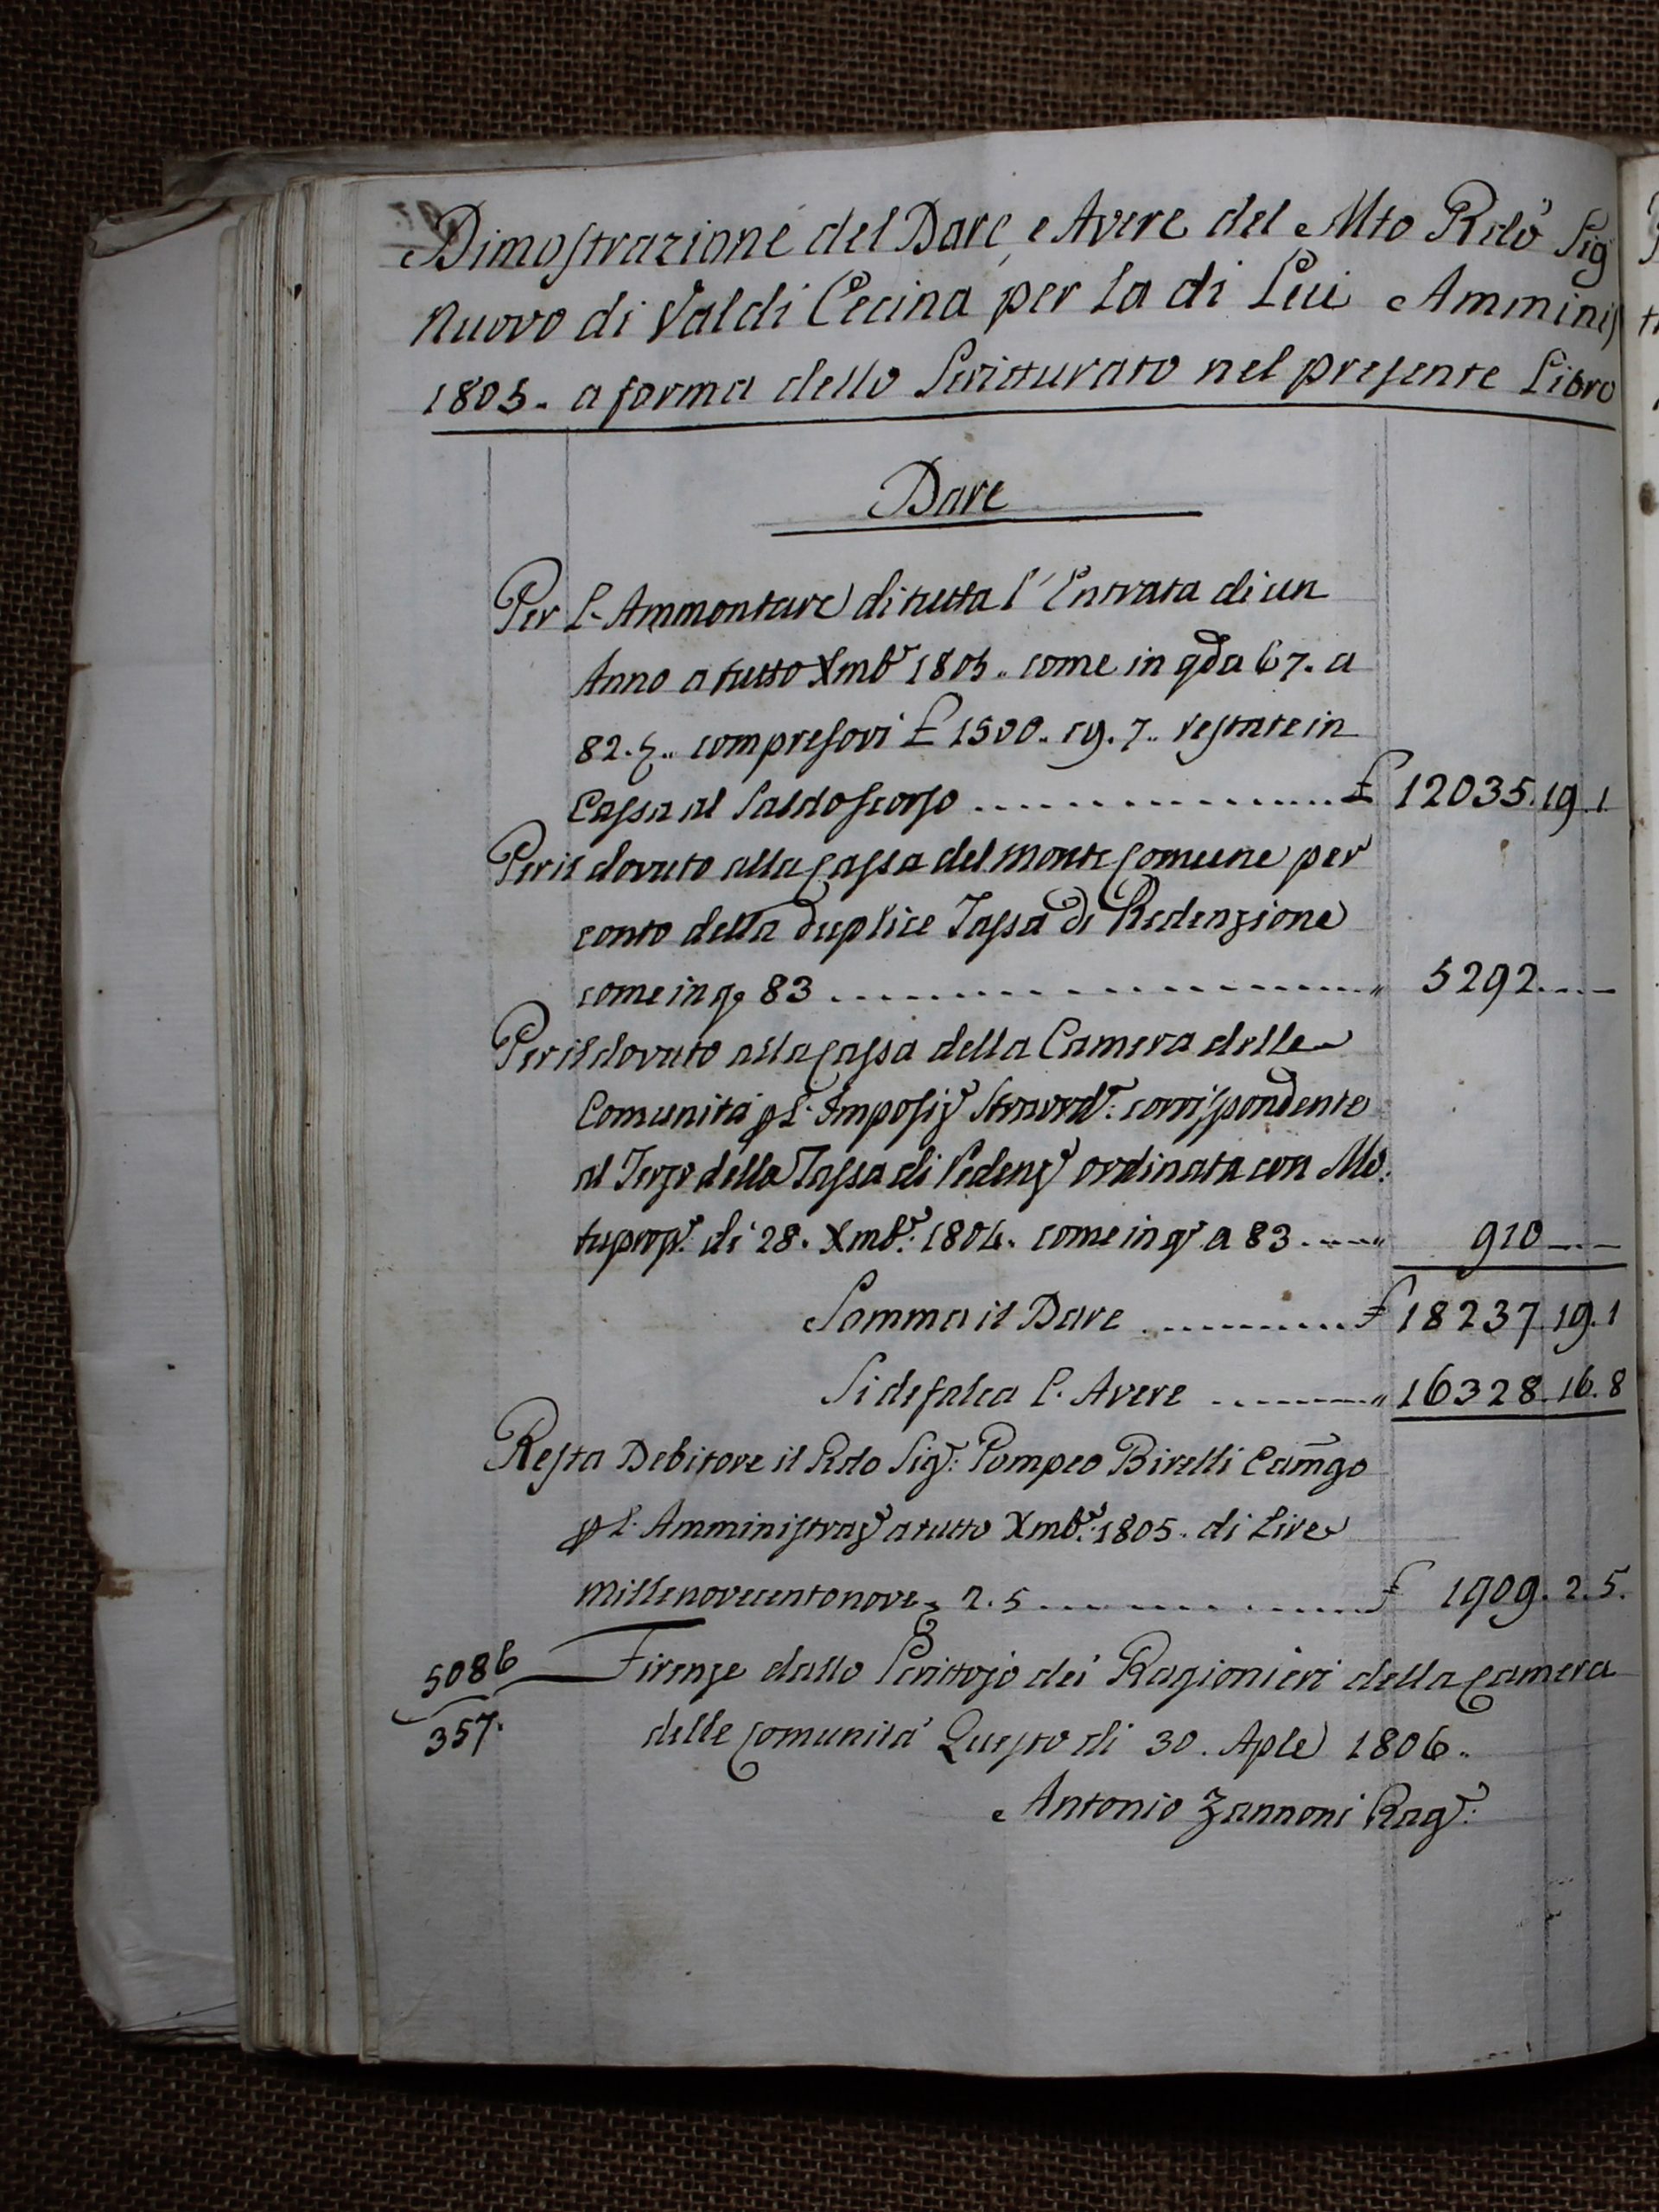 Dimostrazione del Dare, e Avere del Mto Rdo Sig
Nuovo di Valdi Cecina per la di Lui Amminis
1805. a forma dello Scritturato nel presente Libro
Dare
Per L'Ammontare di tutta l'Entrata di un
Anno a tutto Xmbr 1805.. come in qda 67. a
82. compresovi £ 1500.. 19. 7.. restate in
Cassa al Saldo scorso £ 12035. 19. 1.
Per il dovuto alla Cassa del Monte Comune per
conto della duplice Tassa di Redenzione
come in qo 83 " 5292
Per il dovuto alla Cassa della Camera delle
Comunità p L'Imposiz Straord: corrispondente
al Terzo della Tassa di Redenz ordinata con Mo:
tuprop: di 28. Xmbr: 1804. come in qo a 83 " 910
Somma il Dare £ 18237. 19. 1
Si defalca L'Avere " 16328. 16. 8
Resta Debitore il Rdo Sig: Pompeo Birelli Camgo
p L'Amministraz a tutto Xmbr: 1805. di Lire
millenovecentonove 2. 5 £ 1909. 2. 5.
5086 Firenze dallo Scrittojo dei Ragionieri della Camera
357. delle Comunità Questo di 30. Aple 1806..
Antonio Zannoni Rag: